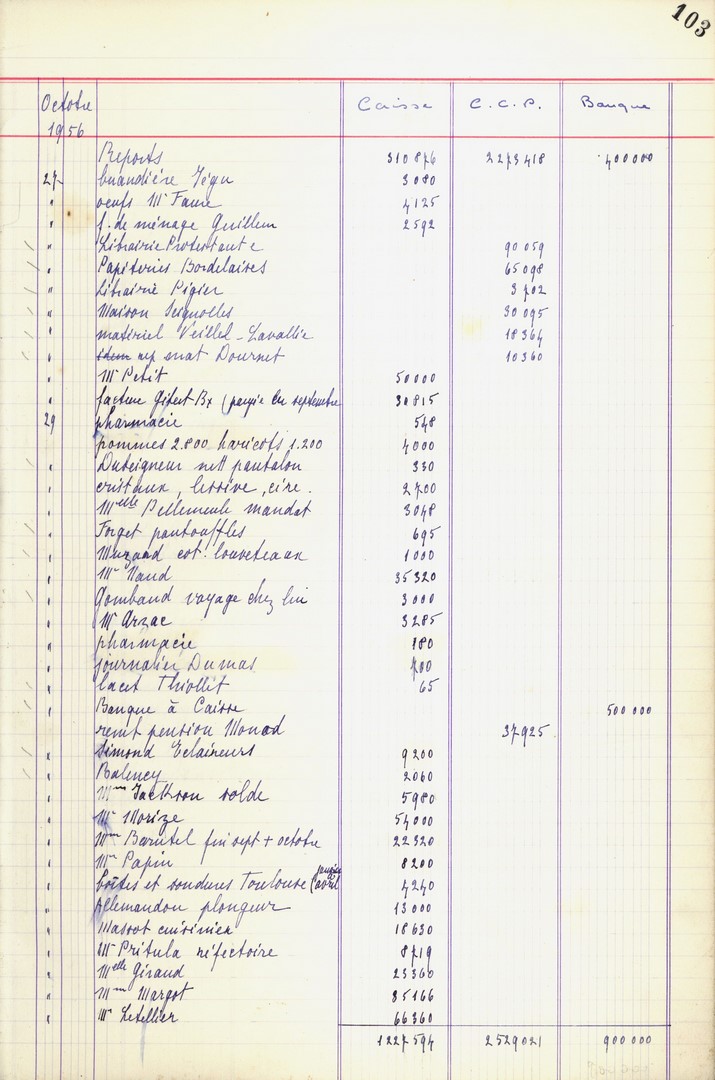 103
Octobre Caisse C.C.P. Banque
1956
Reports 310876 2273418 400000
27 buandière Jégu 3080
" oeufs Mr Faure 4125
" f. de ménage Guillem 2592
" Librairie Protestante 90059
" Papéteries Bordelaises 65098
" Librairie Pigier 3702
" Maison Seignolles 30095
" matériel Veillet-Lavallée 18364
" rep enat Dournet 10360
" Mr Petit 50000
" facture Gibert Bx (payée en septembre 30815
29 pharmacie 548
pommes 2.800 haricots 1.200 4000
" Duteigneur nett pantalon 330
" cristaux, lessive, cire. 2700
" Melle Pellemeule mandat 3048
" Forget pantouffles 695
" Muzard cot. louveteaux 1000
" Mr Naud 35320
" Gombaud voyage chez lui 3000
" Mr Arzac 3285
" pharmacie 180
" journalier Dumas 700
" lacet Thiollet 65
" Banque à Caisse 500000
remt pension Monod 37925
" Simond Eclaireurs 9200
" Balency 2060
" Mme Jackson solde 5980
" Mr Morize 54000
" Mme Barutel fin sept + octobre 22320
" Mme Papin 8200
" boîtes et soudures Toulouse (janvier avril 4240
" Allemandou plongeur 13000
" Massot cuisinier 18630
" Mr Pritula réfectoire 8719
" Melle Giraud 25360
" Mme Margot 85166
" Mr Letellier 66360
1227594 2529021 900000